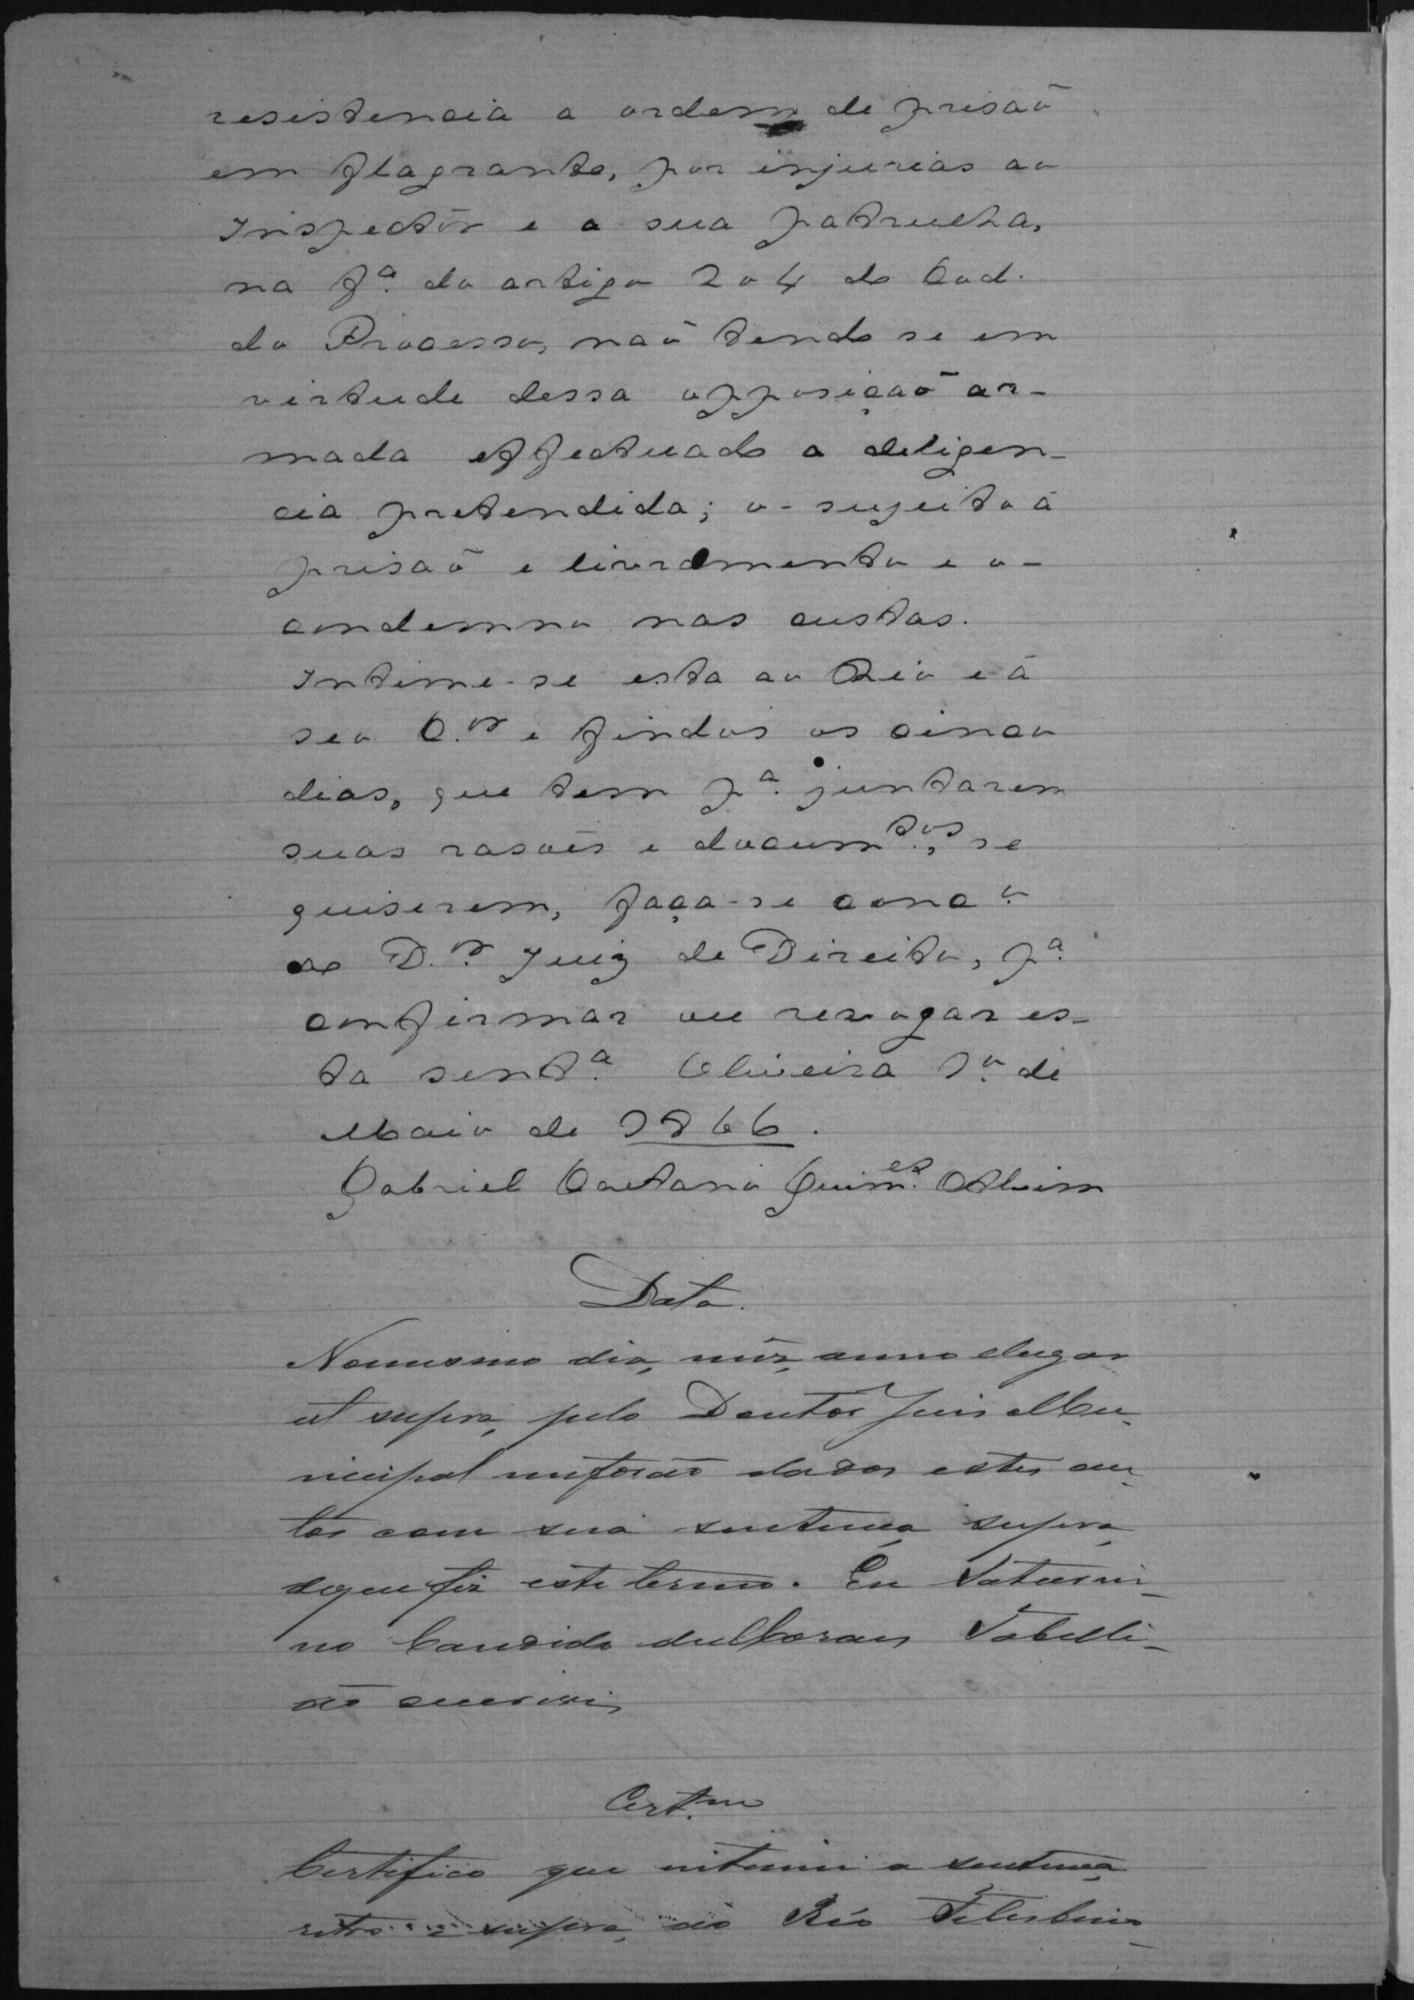 resistencia a ordem de prisaõ
em flagrante, por injurias ao
Inspectôr e a sua patrulha,
na f.ª do artigo 204 do Cod.
do Processo, naõ tendo se em
virtude dessa opposiçaõ ar-
mada effectuado a deligen-
cia pretendida; o-sugeito á
prisaõ e livramento e o-
condemno nas custas.
Intime-se esta ao Reo e á
seo C.or e findos os cinco
dias, que tem p.ª juntarem
suas rasoẽs e documtos., se
quiserem, faça-se conc.o
ao D.or Juiz de Direito, p.ª
confirmar ou revogar es-
ta sent.ª Oliveira 1.o de
Maio de 1866.
Gabriel Caetano Guim.es Alvim
Data.
No mesmo dia, mêz, anno elugar
ut supra, pelo Doutor Juis Mu-
nicipal me foraõ dados estes au-
tos com sua sentença supra,
de que fiz este termo. Eu Saturni-
no Candido de Moraes Tabelli-
aõ escrivi,
Cert.m
Certifico que intimei a sentença
retro e supra, ao Réo